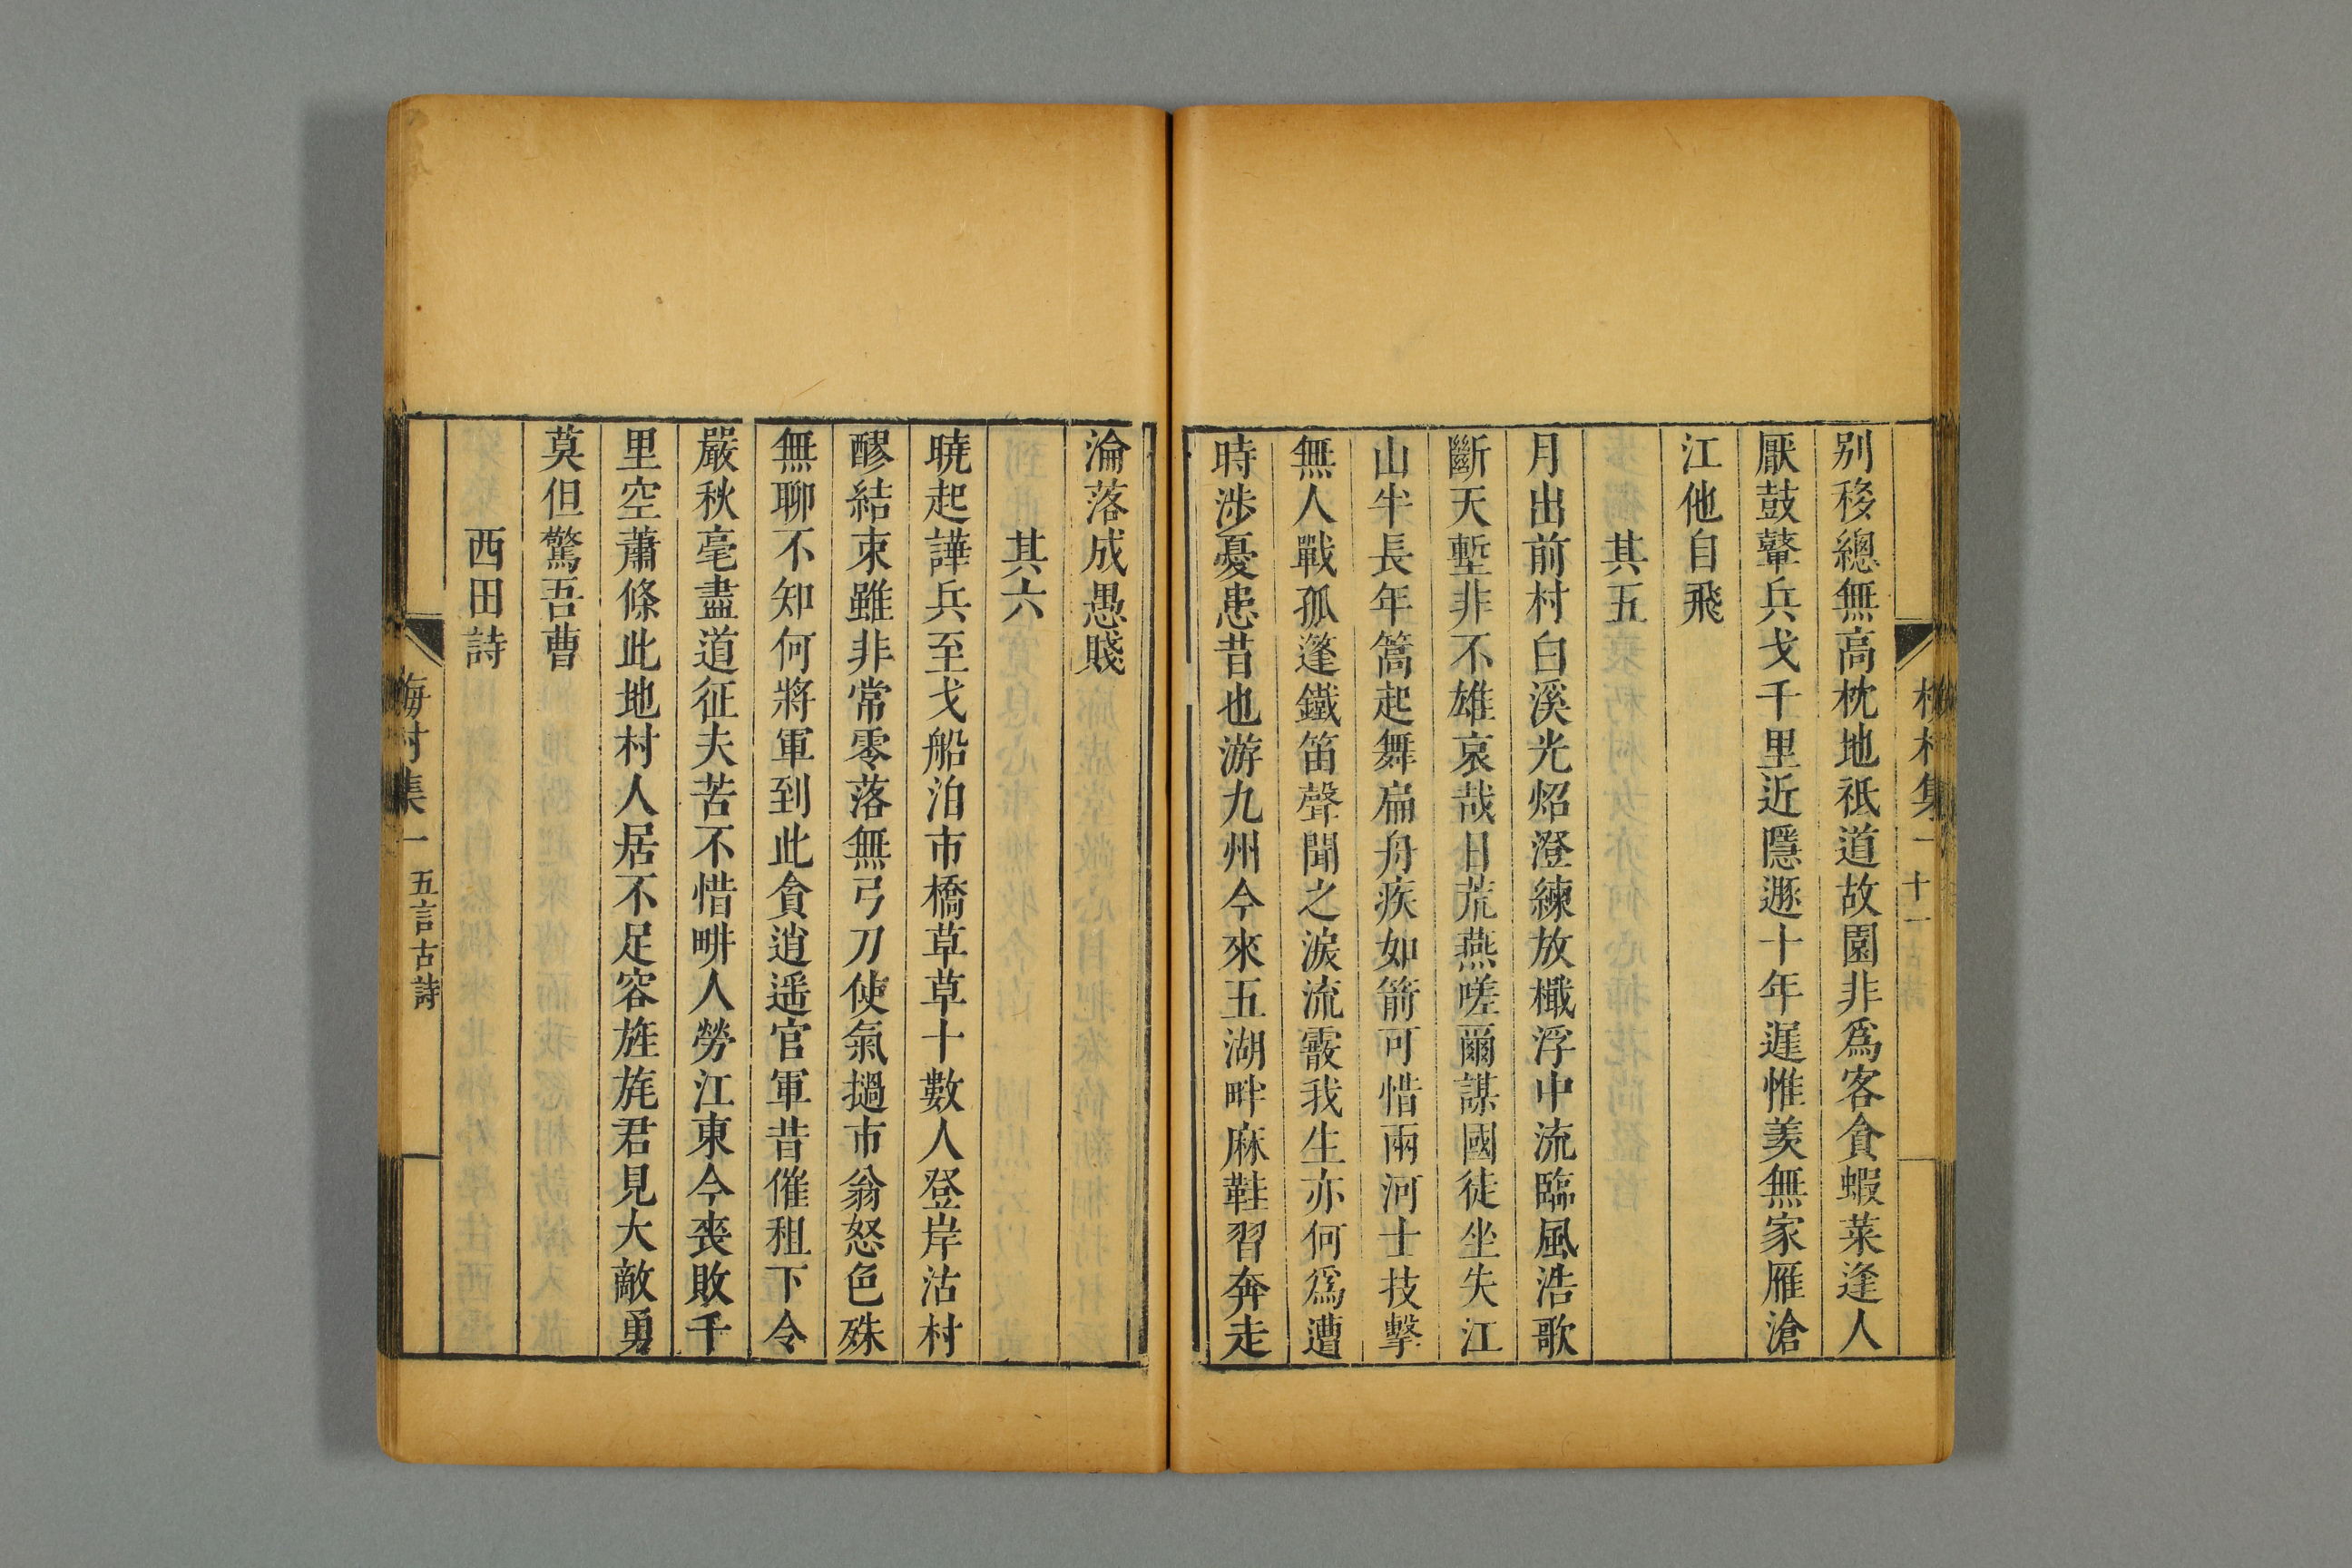 别移總無高枕地祇道故園非爲客食蝦菜逢人
厭鼓鼙兵戈千里近隱遯十年遲惟羨無家雁滄
江他自飛
其五
月出前村白溪光炤澄練放檝浮中流臨風浩歌
斷天塹非不雄哀哉日荒燕嗟爾謀國徒坐失江
山半長年篙起舞扁舟疾如箭可惜兩河士技擊
無人戰孤篷鐵笛聲聞之淚流霰我生亦何爲遭
時涉憂患昔也游九州今來五湖畔麻鞋習奔走
淪落成愚賤
其六
曉起譁兵至戈船泊市橋草草十數人登岸沽村
醪結束雖非常零落無弓刀使氣撾市翁怒色殊
無聊不知何將軍到此貪逍遥官軍昔催租下令
嚴秋毫盡道征夫苦不惜畊人勞江東今喪敗千
里空蕭條此地村人居不足容旌旄君見大敵勇
莫但驚吾曹
西田詩
梅村集一 五言古詩
村集一 十一